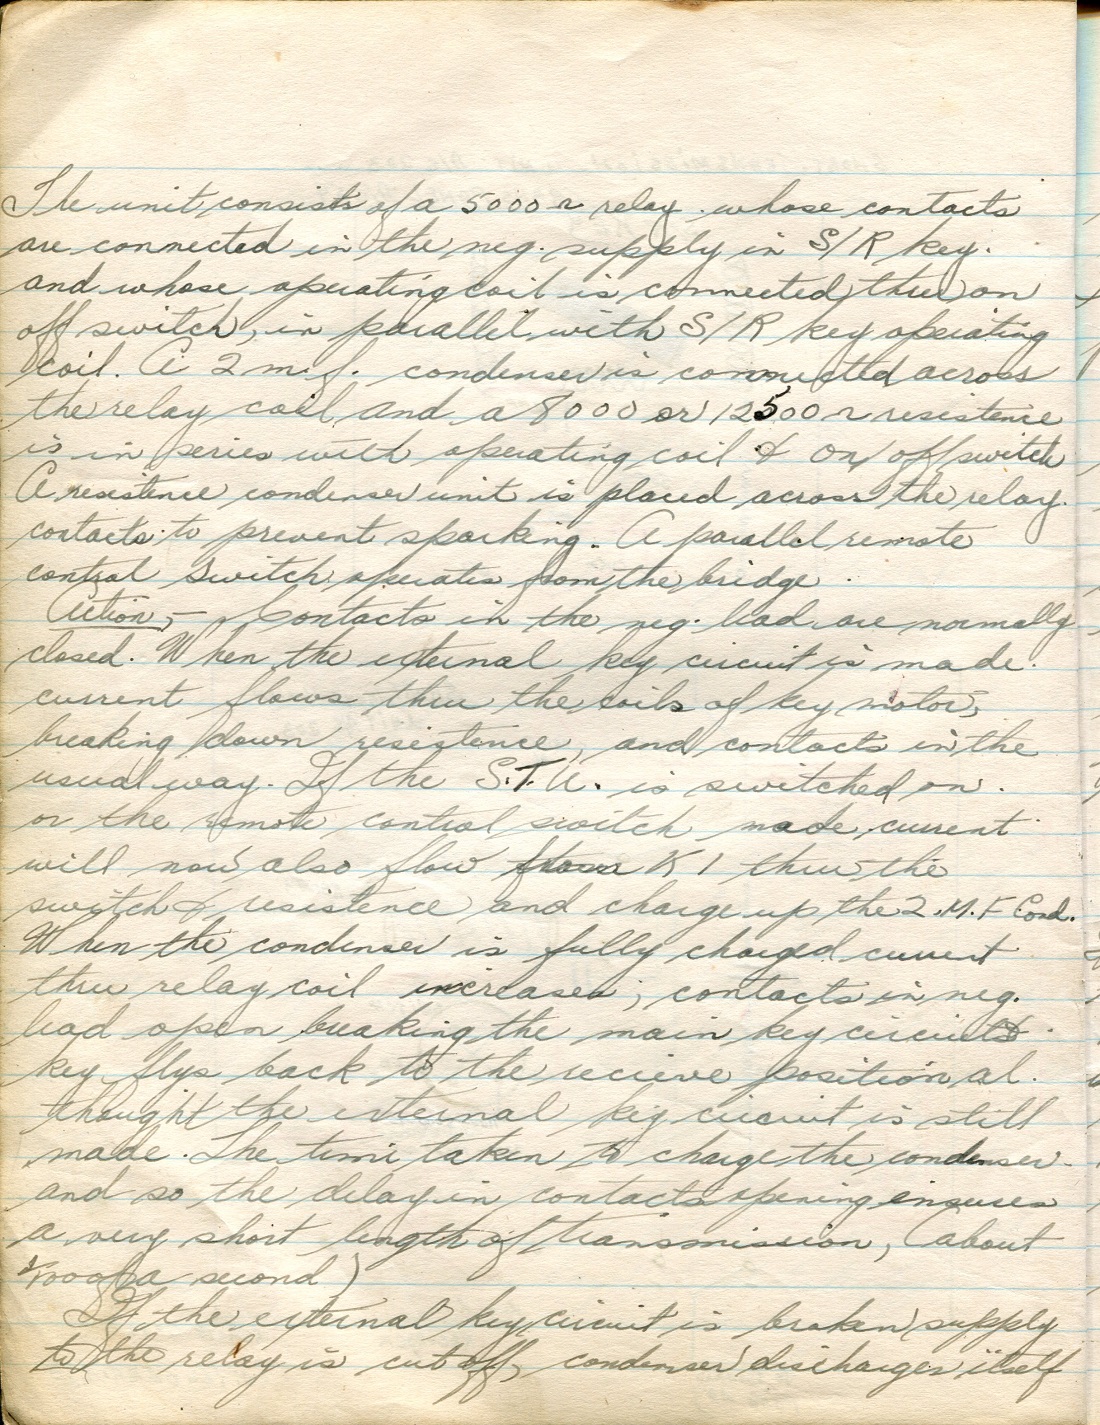 The unit consists of a 5000 ~ relay whose contacts
are connected in the neg. supply in S/R key.
and whose operating coil is connected thru on
off switch, in parallel with S/R key operating
coil. A 2 m.f. condenser is connected across
the relay coil and a 8000 or 12500 ~ resistence
is in series with operating coil & On/off switch
A resistence condenser unit is placed across the relay.
contacts to prevent sparking. A parallel remote
control switch operates from the bridge.
Action,- Contacts in the neg. lead are normally
closed. When the external key circuit is made.
current flows thru the coils of key motor,
breaking down resistence, and contacts in the
usual way. If the S.T.U. is switched on.
or the remote control switch made, current
will now also flow from K 1 thru the
switch & resistence and charge up the 2.M.F Cond.
When the condenser is fully charged current
thru relay coil increases; contacts in neg.
lead open breaking the main key circuit
key flys back to the recieve position al.
thought the external key circuit is still
made. The time taken to charge the condenser.
and so the delay in contacts opening ensures
a very short length of transmission, (about
of a second)
If the external key circuit is broken supply
to the relay is cut off, condenser discharges itself